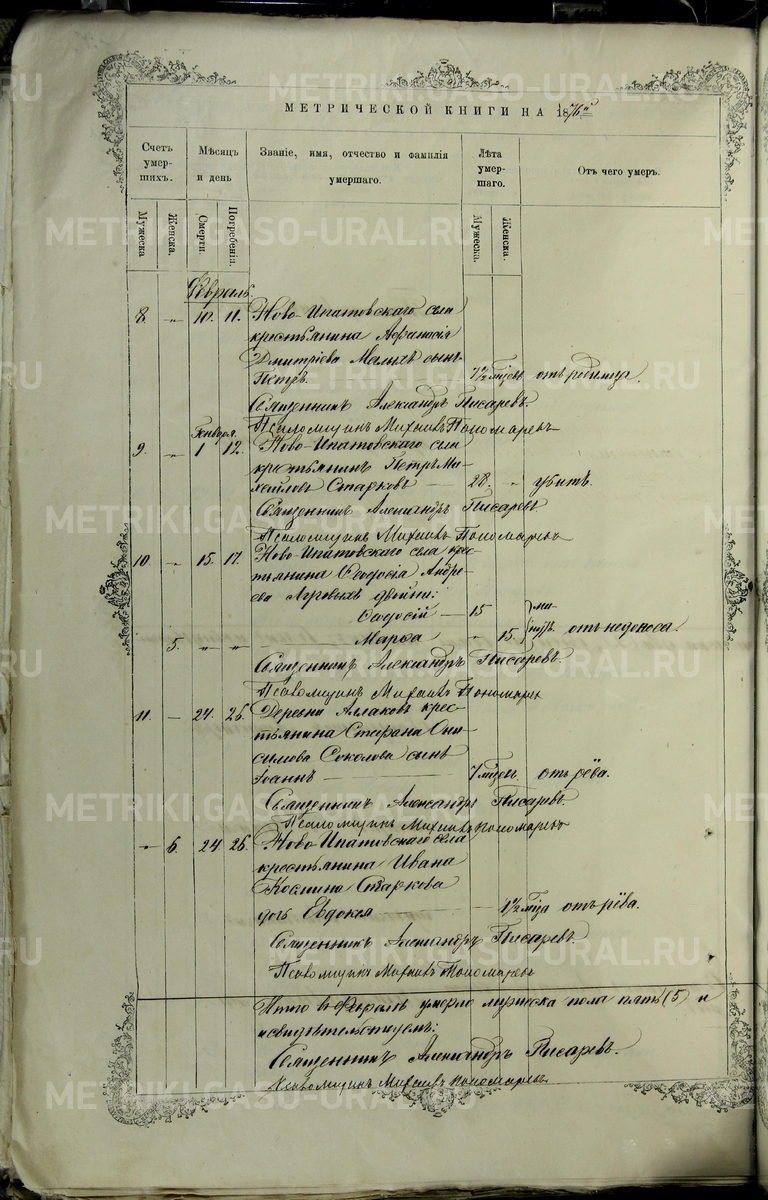 МЕТРИЧЕСКОЙ КНИГИ НА 1876й
Счетъ умер- шихъ.
Мѣсяцъ и день
Званіе, имя, отчество и фамилія умершаго.
Лѣта умер- шаго.
Отъ чего умеръ.
Мужеска. Женска. Смерти. Погребенія. Мужеска. Женска.
Февраль.
8. „ 10. 11. Ново-Ипатовскаго села
крестьянина Афанасія
Дмитріева Малыхъ сынъ
Петръ. 7½ мѣсяц. отъ родимца.
Священникъ Александръ Писаревъ.
Псаломщикъ Михаилъ Пономаревъ
Января.
9. „ 1 12. Ново-Ипатовскаго села
крестьянинъ Петръ Ми-
хайловъ Старковъ — 28. „ убитъ.
Священникъ Александръ Писаревъ
Псаломщикъ Михаилъ Пономаревъ
10. „ 15. 17. Ново-Ипатовскаго села кре-
стьянина Ѳеодосія Андре-
ева двойни:
Ѳеодосій — 15 ми-
5. „ „ Марѳа „ 15. нутъ. отъ недоноса.
Священникъ Александръ Писаревъ.
Псаломщикъ Михаилъ Пономаревъ
11. — 24. 26. Деревни крес-
тьянина Стефана Они-
симова Соколова сынъ
Іоаннъ — 7 мѣсяц. отъ рёва.
Священникъ Александръ Писаревъ.
Псаломщикъ Михаилъ Пономаревъ
„ 6. 24. 26. Ново-Ипатовскаго села
крестьянина Ивана
Козмина Старкова
дочь Евдокея — 1½ мѣца отъ рёва.
Священникъ Александръ Писаревъ.
Псаломщикъ Михаилъ Пономаревъ
Итого въ Февралѣ умерло мужеска пола пять (5) и
Священникъ Александръ Писаревъ.
Псаломщикъ Михаилъ Пономаревъ
METRIKI.GASO-URAL.RU